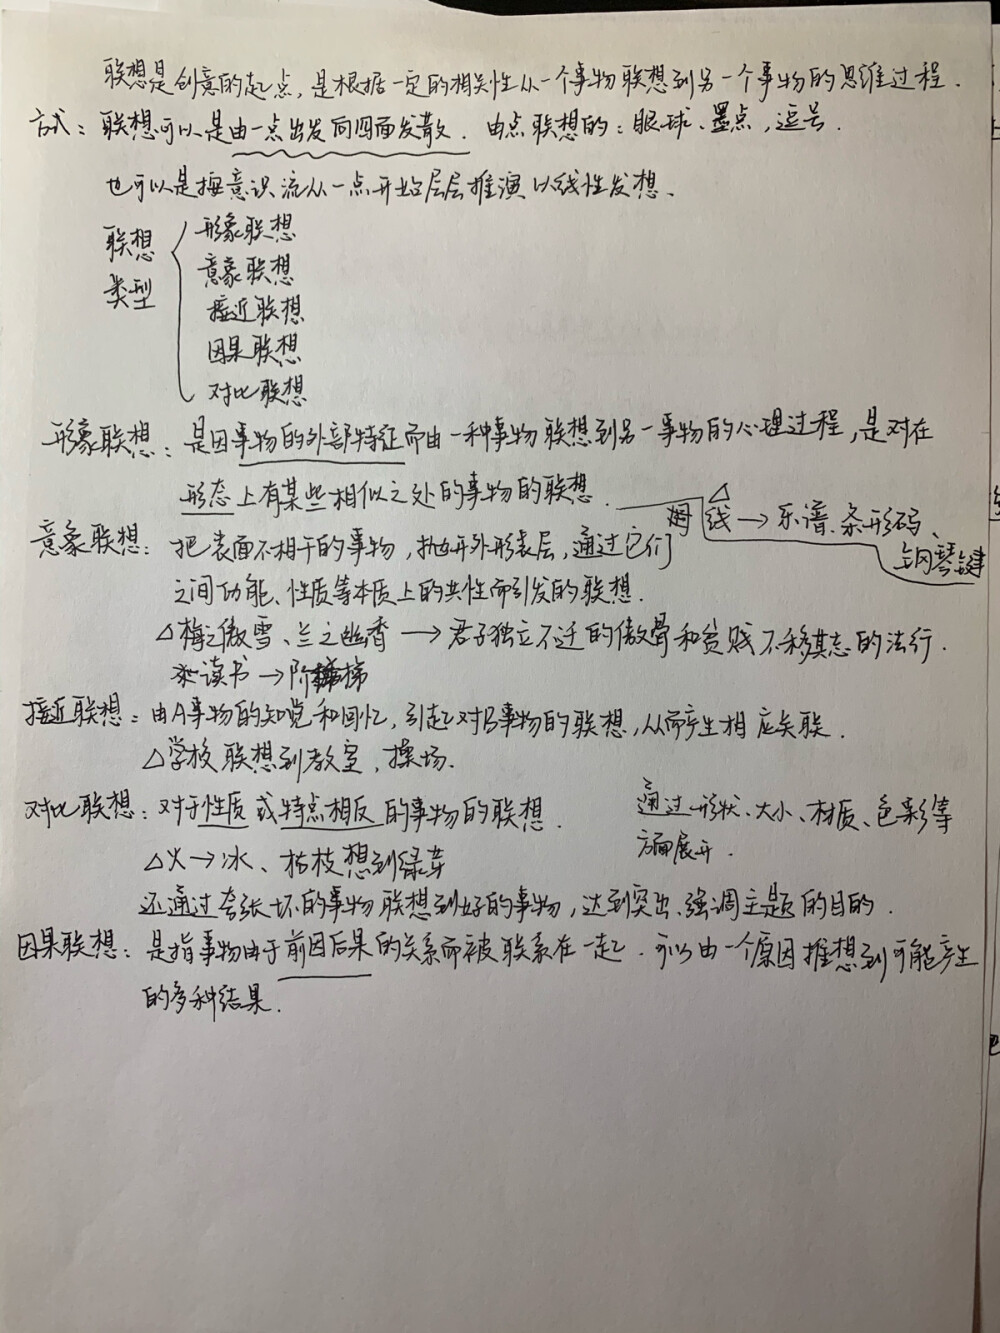 联想是创意的起点，是根据一定的相关性从一个事物联想到另一个事物的思维过程．
方式：联想可以是由一点出发向四面发散．由点联想的：眼球、墨点，逗号．
也可以是按意识流从一点开始层层推演以线性发想．
联想
类型
形象联想
意象联想
接近联想
因果联想
对比联想
形象联想：是因事物的外部特征而由一种事物联想到另一事物的心理过程，是对在
形态上有某些相似之处的事物的联想．
△线→乐谱、条形码、
钢琴键
意象联想：把表面不相干的事物，抛开外形表层，通过它们
之间功能、性质等本质上的共性而引发的联想．
△梅之傲雪、兰之幽香→君子独立不迁的傲骨和贫贱不移其志的法行．
读书→阶梯
接近联想：由A事物的知觉和回忆，引起对B事物的联想，从而产生相应关联．
△学校联想到教室、操场．
对比联想：对于性质或特点相反的事物的联想．
通过形状、大小、材质、色彩等
方面展开．
△火→冰、枯枝想到绿芽
还通过夸张坏的事物联想到好的事物，达到突出、强调主题的目的．
因果联想：是指事物由于前因后果的关系而被联系在一起．可以由一个原因推想到可能产生
的多种结果．